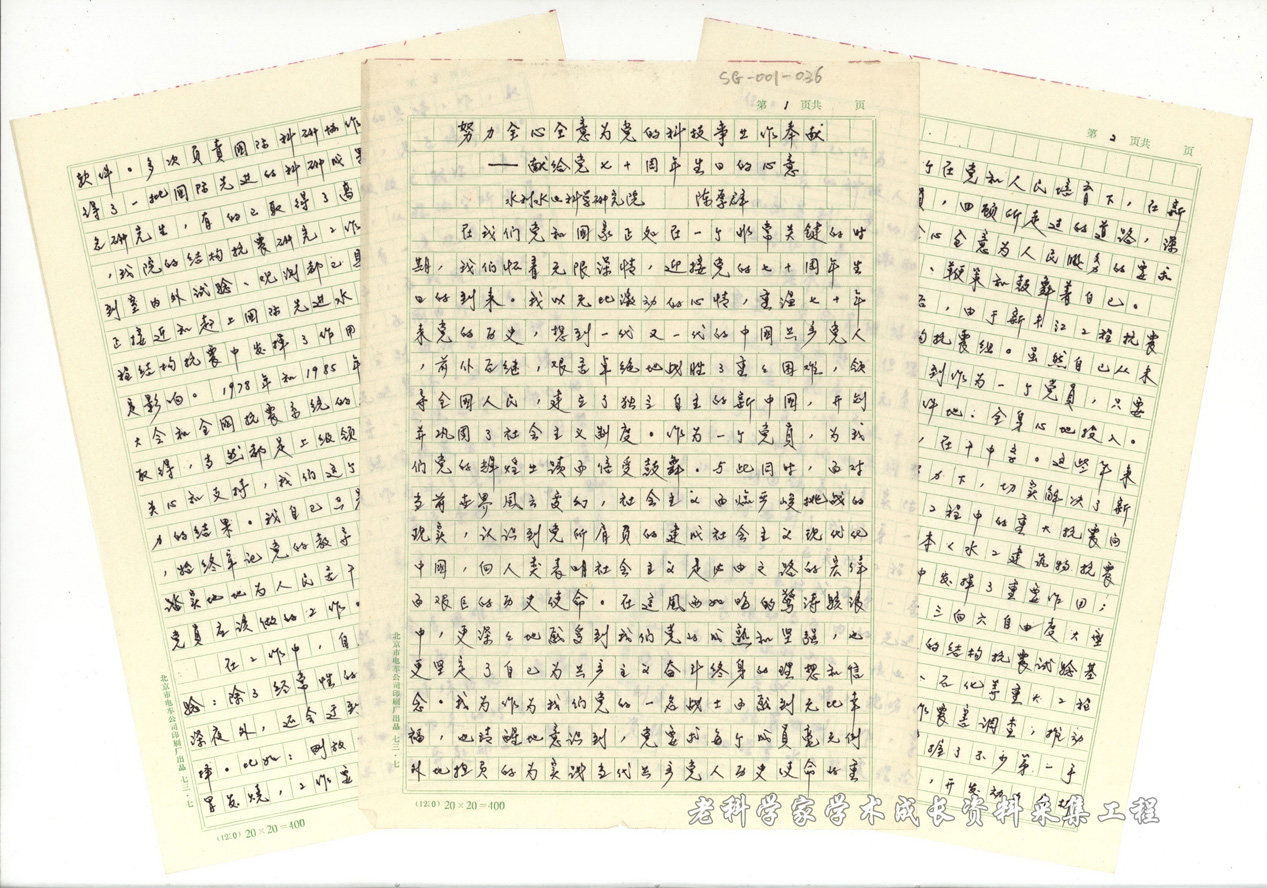 SG-001-036
第 1 页共 页
努力全心全意为党的科技事业作奉献
——献给党七十周年生日的心意
水利水电科学研究院 陈厚群
在我们党和国家正处在一个非常关键的时
期,我们怀着无限深情,迎接党的七十周年生
日的到来。我以无比激动的心情,重温七十年
来党的历史,想到一代又一代的中国共产党人
,前仆后继,艰苦卓绝地战胜了重重困难,领
导全国人民,建立了独立自主的新中国,开创
并巩固了社会主义制度。作为一个党员,为我
们党的辉煌业绩而倍受鼓舞。与此同时,面对
当前世界风云变幻,社会主义面临严峻挑战的
现实,认识到党所肩负的建成社会主义现代化
中国,向人类表明社会主义是必由之路的光荣
而艰巨的历史使命。在这风雨如晦的惊涛骇浪
中,更深深地感到我们党的成熟和坚强,也
更坚定了自己为共产主义奋斗终身的理想和信
念。我为作为我们党的一名战士而感到无比幸
福,也清醒地意识到,党要求每个成员毫无例
外地担负的为实践当代共产党人历史使命的重
(1210) 20×20=400
北京市电车公司印刷厂出品 七三·七
第 2 页共 页
个在党和人民培育下,在新
员,回顾所走过的道路,深
全心全意为人民服务的要求
、鞭策和鼓舞着自己。
后,由于新丰江工程抗震
构抗震组。虽然自己从未
到作为一个党员,只要
件地:全身心地投入。
,在干中学。这些年来
力下,切实解决了新
工程中的重大抗震问
本《水工建筑物抗震
中发挥了重要作用;
三向六自由度大型
的结构抗震试验基
石化等重大工程
震害调查;推动
握了不少第一手
,开发
软件。多次负责国际科研协作
得了一批国际先进的科研成果
名研究生,有的已取得了高
,我院的结构抗震研究工作
到室内外试验、观测都已具
已接近和赶上国际先进水
程结构抗震中发挥了作用
定影响。1978年和1985年
大会和全国抗震系统的
取得,当然都是上级领
关心和支持,我们这个
力的结果。我自己只是
,始终牢记党的教导
踏实地地为人民苦干
党员应该做的工作。
在工作中,自
验:除了经常性的
深夜外,还会遇到
择。比如:刚放
早发烧,工作
(1210) 20×20=400
北京市电车公司印刷厂出品 七三·七
老科学家学术成长资料采集工程